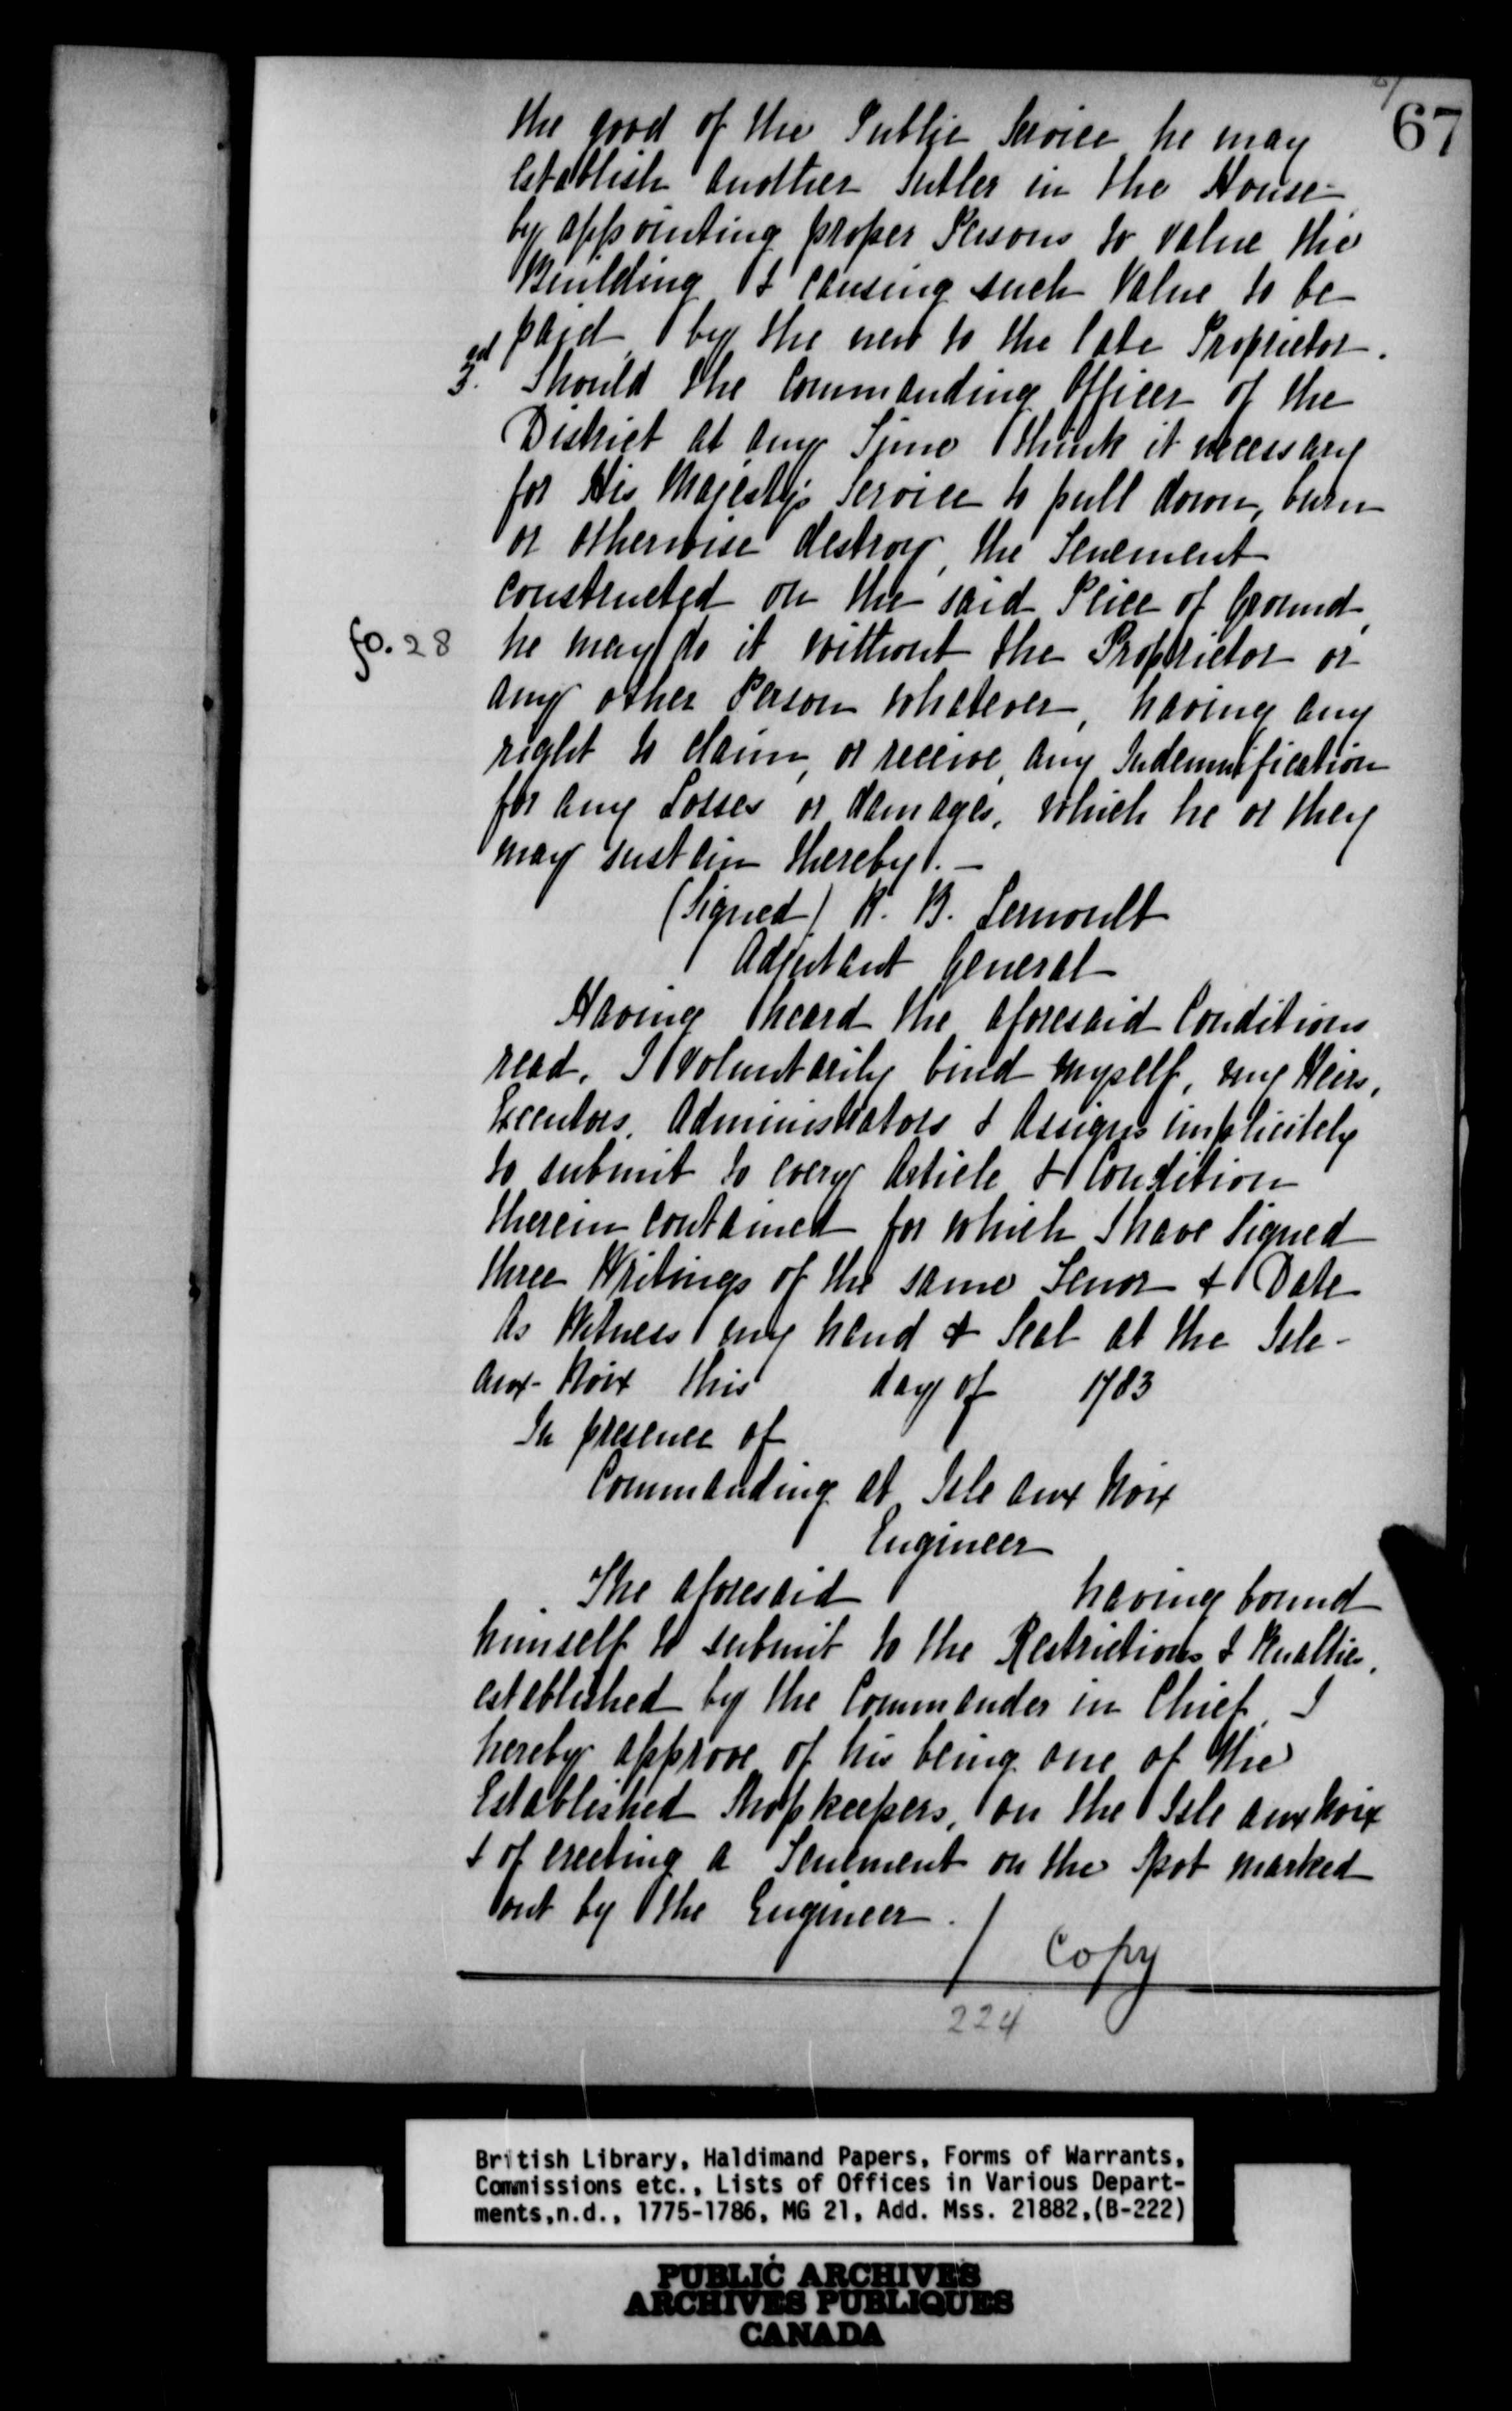 67
the good of the Public Service he may
establish another Sutler in the House
by appointing proper Persons to value the
Building & causing such Value to be
paid, by the new to the late Proprietor.
3rd. Should the Commanding Officer of the
District at any Time think it necessary
for His Majesty's Service to pull down, burn
or otherwise destroy, the Tenement
constructed on the said Peice of Ground,
fo. 28 he may do it without the Proprietor or
any other Person whatever, having any
right to claim, or receive, any Indemnification
for any Losses or damages, which he or they
may sustain thereby. —
(Signed) R. B. Lernoult
Adjutant General
Having heard the aforesaid Conditions
read, I voluntarily bind myself, my Heirs,
Executors, Administrators & Assigns implicitely
to submit to every Article & Condition
therein contained for which I have Signed
three Writings of the same Tenor & Date
As Witness my hand & Seal at the Isle-
aux-Noix this day of 1783
In presence of
Commanding at Isle aux Noix
Engineer
The aforesaid having bound
himself to submit to the Restrictions & Penalties,
established by the Commander in Chief, I
hereby approve of his being one of the
Established Shopkeepers, on the Isle aux Noix
& of erecting a Tenement on the Spot marked
out by the Engineer. /
Copy
224
British Library, Haldimand Papers, Forms of Warrants,
Commissions etc., Lists of Offices in Various Depart-
ments,n.d., 1775-1786, MG 21, Add. Mss. 21882,(B-222)
PUBLIC ARCHIVES
ARCHIVES PUBLIQUES
CANADA